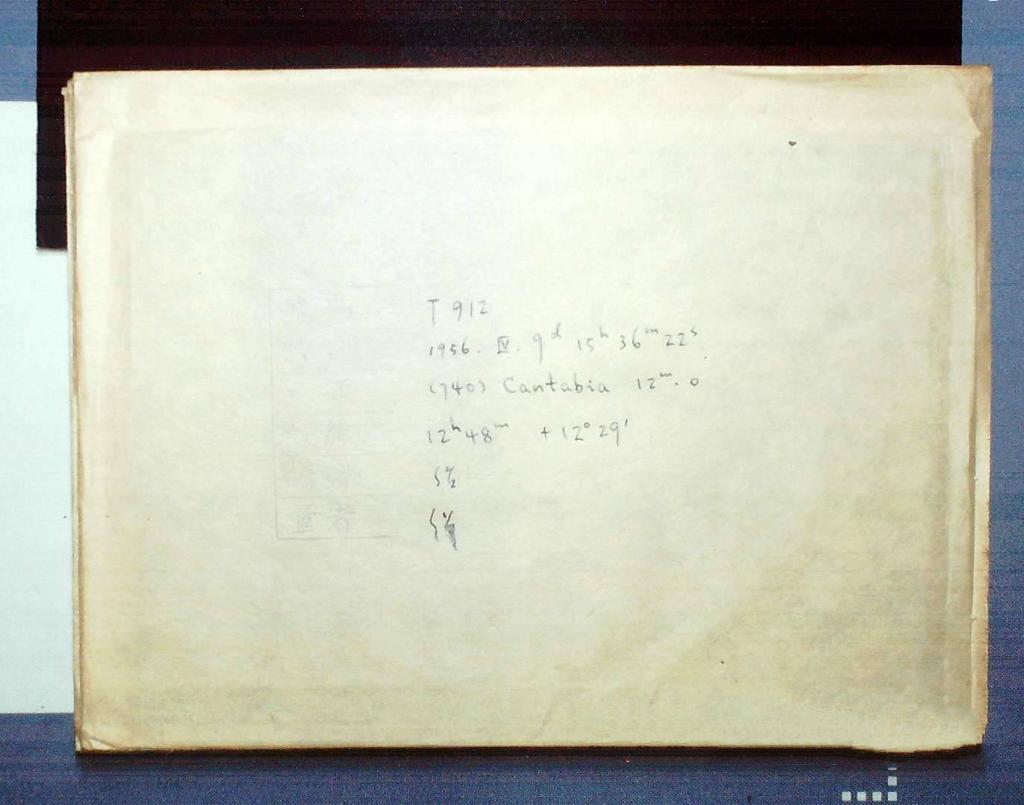 T 912
1956. Ⅳ. 9ᵈ 15ʰ 36ᵐ 22ˢ
(740) Cantabia 12ᵐ.0
12ʰ48ᵐ +12°29'